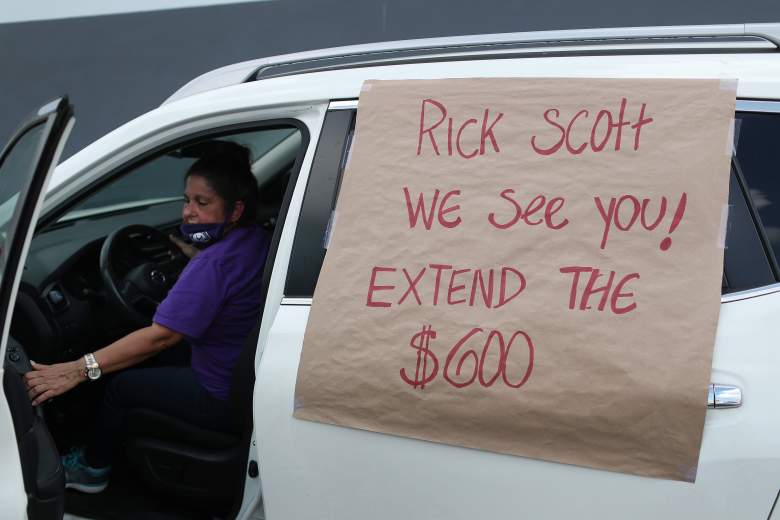 RICK SCOTT
WE See you!
EXTEND THE
$600